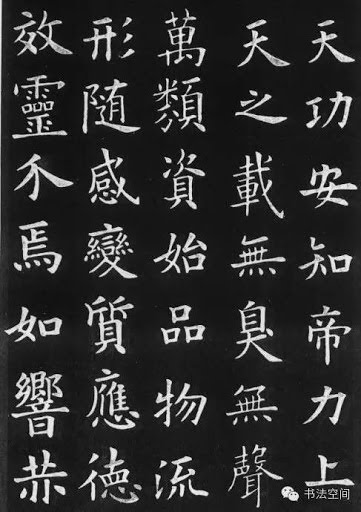 天功安知帝力上
天之載無臭無聲
萬類資始品物流
形随感變質應德
效靈介焉如響赫
书法空间